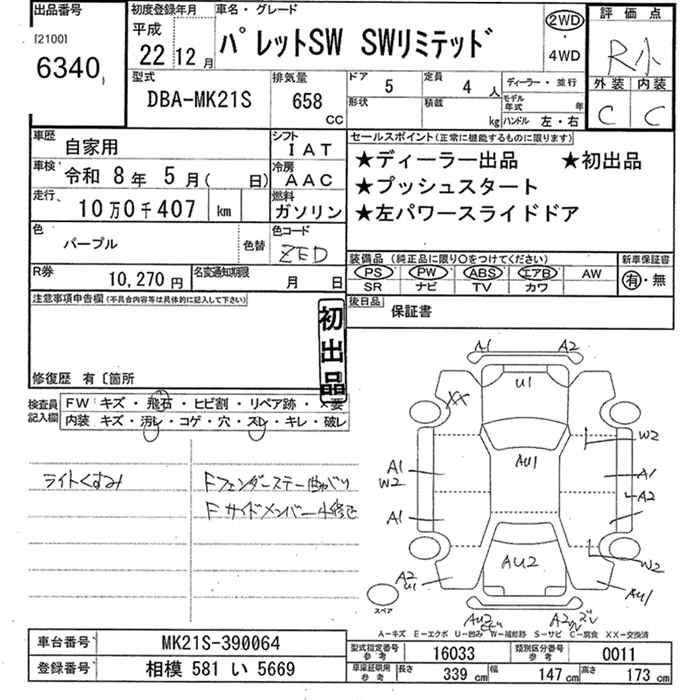 出品番号
[2100]
6340
初度登録年月
平成
22 12月
車名・グレード
パレットSW SWリミテッド
2WD
・
4WD
評価点
R小
外装 内装
C C
型式
DBA-MK21S
排気量
658
CC
ドア
5
定員
4人
形状
積載
kg
ディーラー・並行
モデル年式 年
ハンドル 左・右
車歴
自家用
車検
令和 8年 5月( 日)
走行
10万0千407 km
色
パープル
色替
シフト
IAT
冷房
AAC
燃料
ガソリン
色コード
ZED
R券
10,270円
名変通知期限
月 日
セールスポイント(正常に機能するものに限ります)
★ディーラー出品 ★初出品
★プッシュスタート
★左パワースライドドア
装備品(純正品に限り○をつけてください)
PS PW ABS エアB AW
SR ナビ TV カワ
新車保証書
有・無
後日品
保証書
注意事項申告欄(不具合内容等は具体的に記入して下さい)
初出品
修復歴 有〔箇所
検査員記入欄
FW キズ・飛石・ヒビ割・リペア跡・×要
内装 キズ・汚レ・コゲ・穴・スレ・キレ・破レ
ライトくすみ
Fフェンダーステー曲がり
Fサイドメンバー小修正
A1 A2
U1
XX
AU1
W2
A1
W2
A1
A2
A1
AU2
W2
A2
U1
AU1
スペア
AU2
A2
A-キズ E-エクボ U-凹み W-補修跡 S-サビ C-腐食 XX-交換済
車台番号
MK21S-390064
登録番号
相模 581 い 5669
型式指定番号
参考
16033
類別区分番号
参考
0011
車庫証明用
参考
長さ
339 cm
幅
147 cm
高さ
173 cm